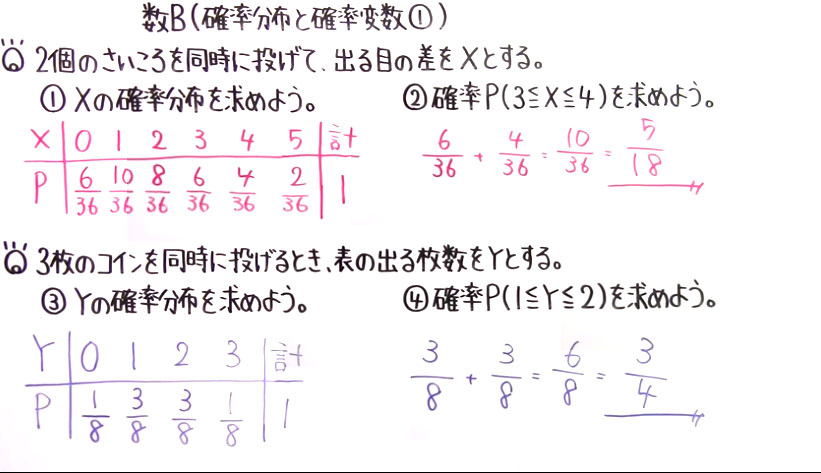 数B(確率分布と確率変数①)
Q 2個のさいころを同時に投げて、出る目の差をXとする。
① Xの確率分布を求めよう。
X 0 1 2 3 4 5 計
P 6/36 10/36 8/36 6/36 4/36 2/36 1
② 確率P(3≦X≦4)を求めよう。
6/36 + 4/36 = 10/36 = 5/18
Q 3枚のコインを同時に投げるとき、表の出る枚数をYとする。
③ Yの確率分布を求めよう。
Y 0 1 2 3 計
P 1/8 3/8 3/8 1/8 1
④ 確率P(1≦Y≦2)を求めよう。
3/8 + 3/8 = 6/8 = 3/4